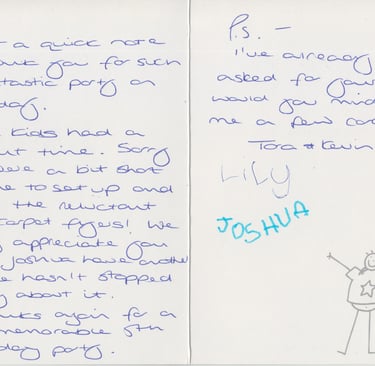 a quick note
you for such
tastic party on
day.
Kids had a
time. Sorry
were a bit short
to set up and
the reluctant
carpet flyers! We
appreciate you
Joshua have another
he hasn't stopped
about it.
again for a
memorable 5th
day party.
P.s. -
I've already
asked for
would you
me a few
Tara + Kevin
LiLy
JOSHUA